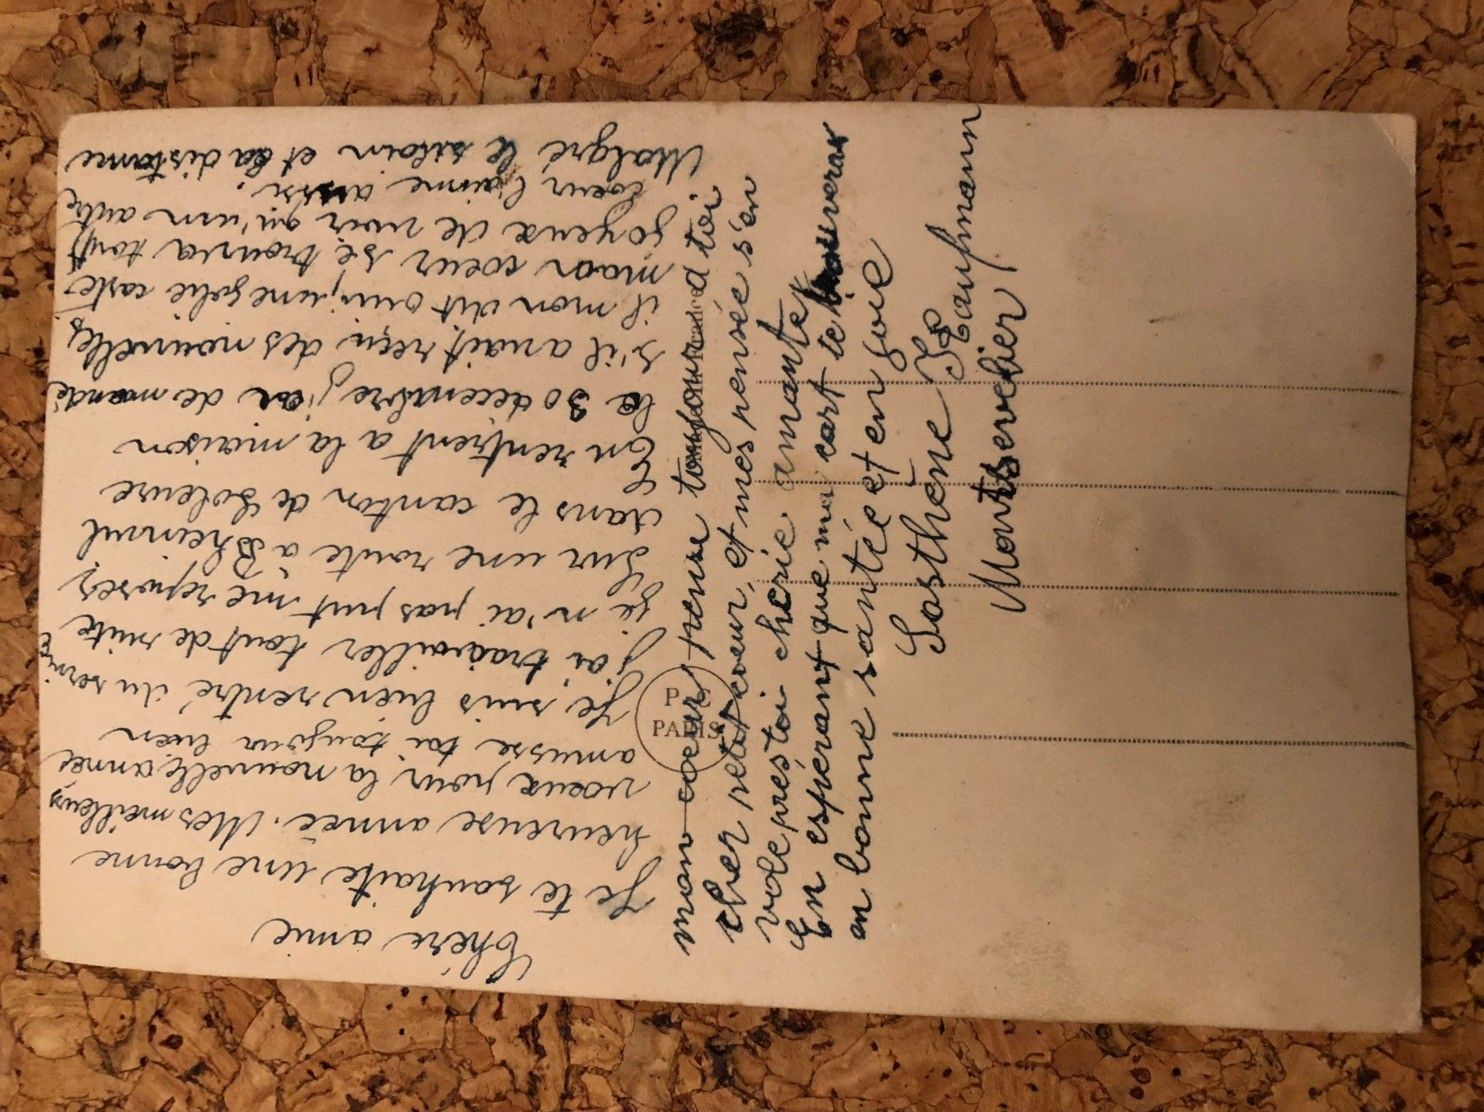 Chère amie
Je te souhaite une bonne
heureuse année. Mes meilleurs
voeux pour la nouvelle année
amusse toi toujour bien
Je suis bien rentré du servise
j'ai tragvailler tout de suite
je n'ai pas put me reposez
Sur une route à
dans le canton de Soleure
En rentrent a la maison
le 30 decembre j'ai de mandé
s'il avait reçu des nouvelles,
il mon dit oui, une jolie carte
mon coeur se trouva tout
joyeux de voir qu'un autre
coeur l'aime aussi.
Malgré le siloin et la distance
mon coeur pense toujour a toi
cher petit coeur, et mes pensée s'en
vole près toi cherie amante
En espérant que ma cart te trouveras
en bonne santée et en joie
Sosthène Kaufmann
Montsevelier
PARIS